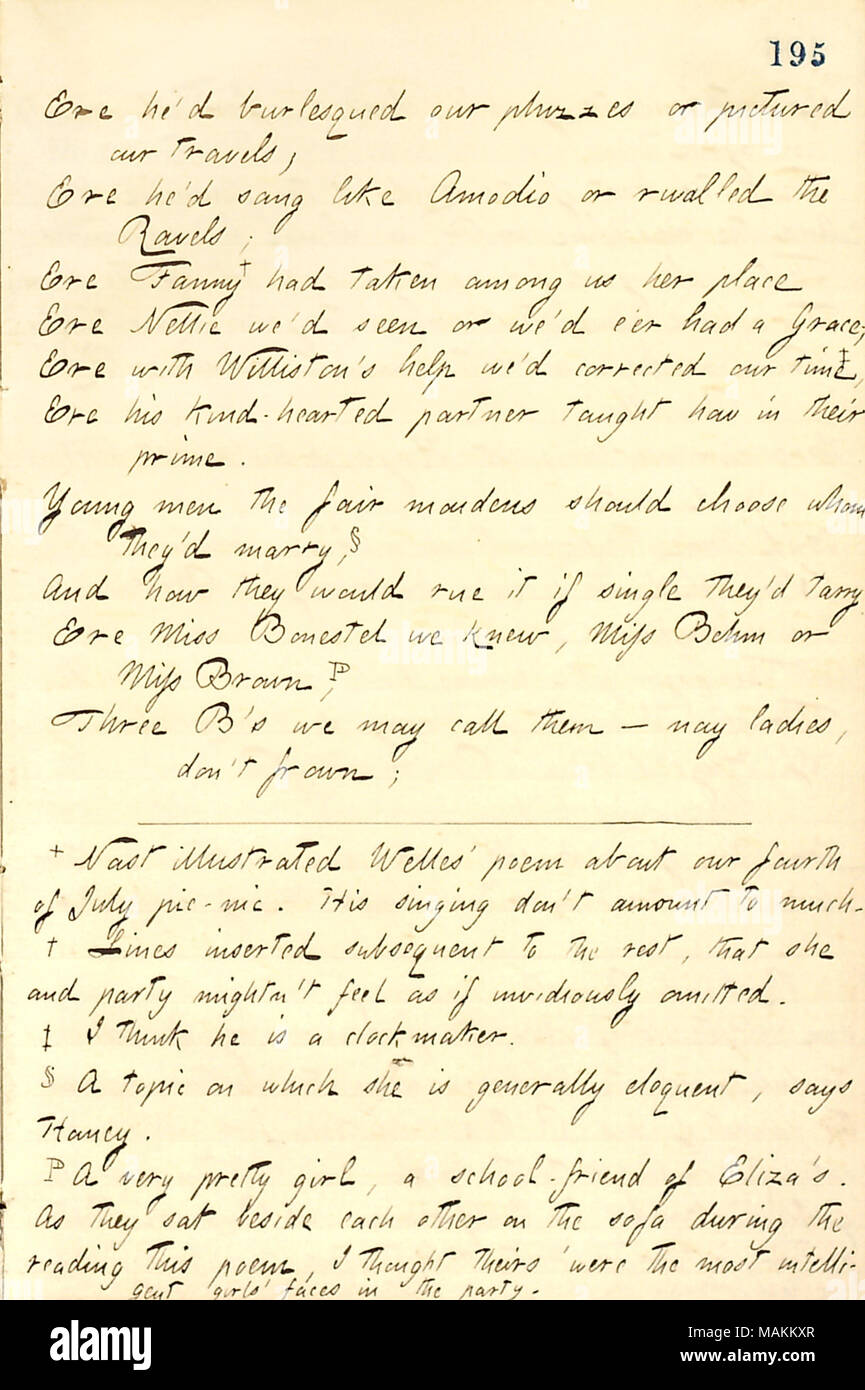 195
Ere he'd burlesqued our phizzes or pictured
our travels;
Ere he'd sang like Amodio or rivalled the
Ravels;
Ere Fanny† had taken among us her place
Ere Nellie we'd seen or we'd e'er had a Grace;
Ere with Williston's help we'd corrected our time‡,
Ere his kind-hearted partner taught how in their
prime.
Young men the fair maidens should choose whom
they'd marry,§
And how they would rue it if single they'd tarry
Ere Miss Bonestel we knew, Miss Behm or
Miss Brown,
Three B's we may call them — nay ladies,
don't frown;
+ Nast illustrated Welles' poem about our fourth
of July pic-nic. His singing don't amount to much.
† Lines inserted subsequent to the rest, that she
and party mightn't feel as if invidiously omitted.
‡ I think he is a clockmaker.
§ A topic on which she is generally eloquent, says
Haney.
A very pretty girl, a school-friend of Eliza's.
As they sat beside each other on the sofa during the
reading this poem, I thought theirs 'were the most intelli-
gent girls' faces in the party.
alamy
Image ID: MAKKXR
www.alamy.com